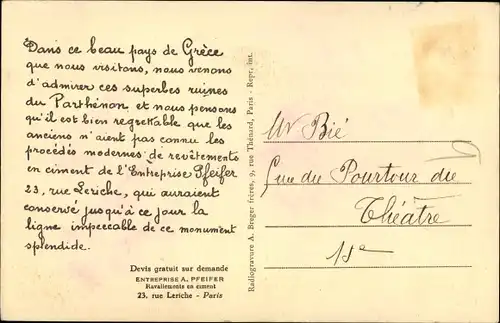 Dans ce beau pays de Grèce
que nous visitons, nous venons
d'admirer ces superbes ruines
du Parthénon et nous pensons
qu'il est bien regrettable que les
anciens n'aient pas connu les
procédés modernes de revêtements
en ciment de l'Entreprise Pfeifer
23, rue Leriche, qui auraient
conservé jusqu'à ce jour la
ligne impeccable de ce monument
splendide.
Devis gratuit sur demande
ENTREPRISE A. PFEIFER
Ravalements en ciment
23, rue Leriche - Paris
Radiogravure A. Breger frères, 9, rue Thénard, Paris - Repr. int.
Mr Bié
rue du Pourtour du
Théâtre